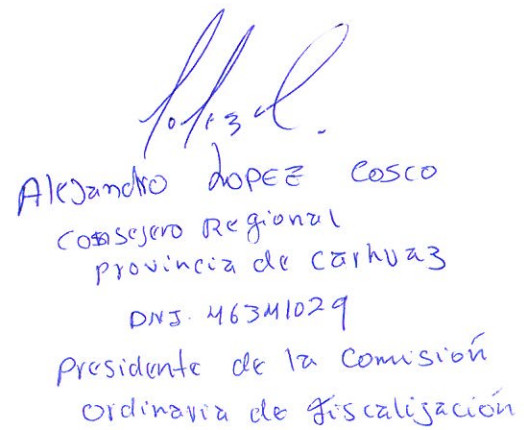 Alejandro LOPEZ COSCO
Consejero Regional
provincia de Carhuaz
DNI. 46341029
presidente de la Comisión
ordinaria de fiscalización